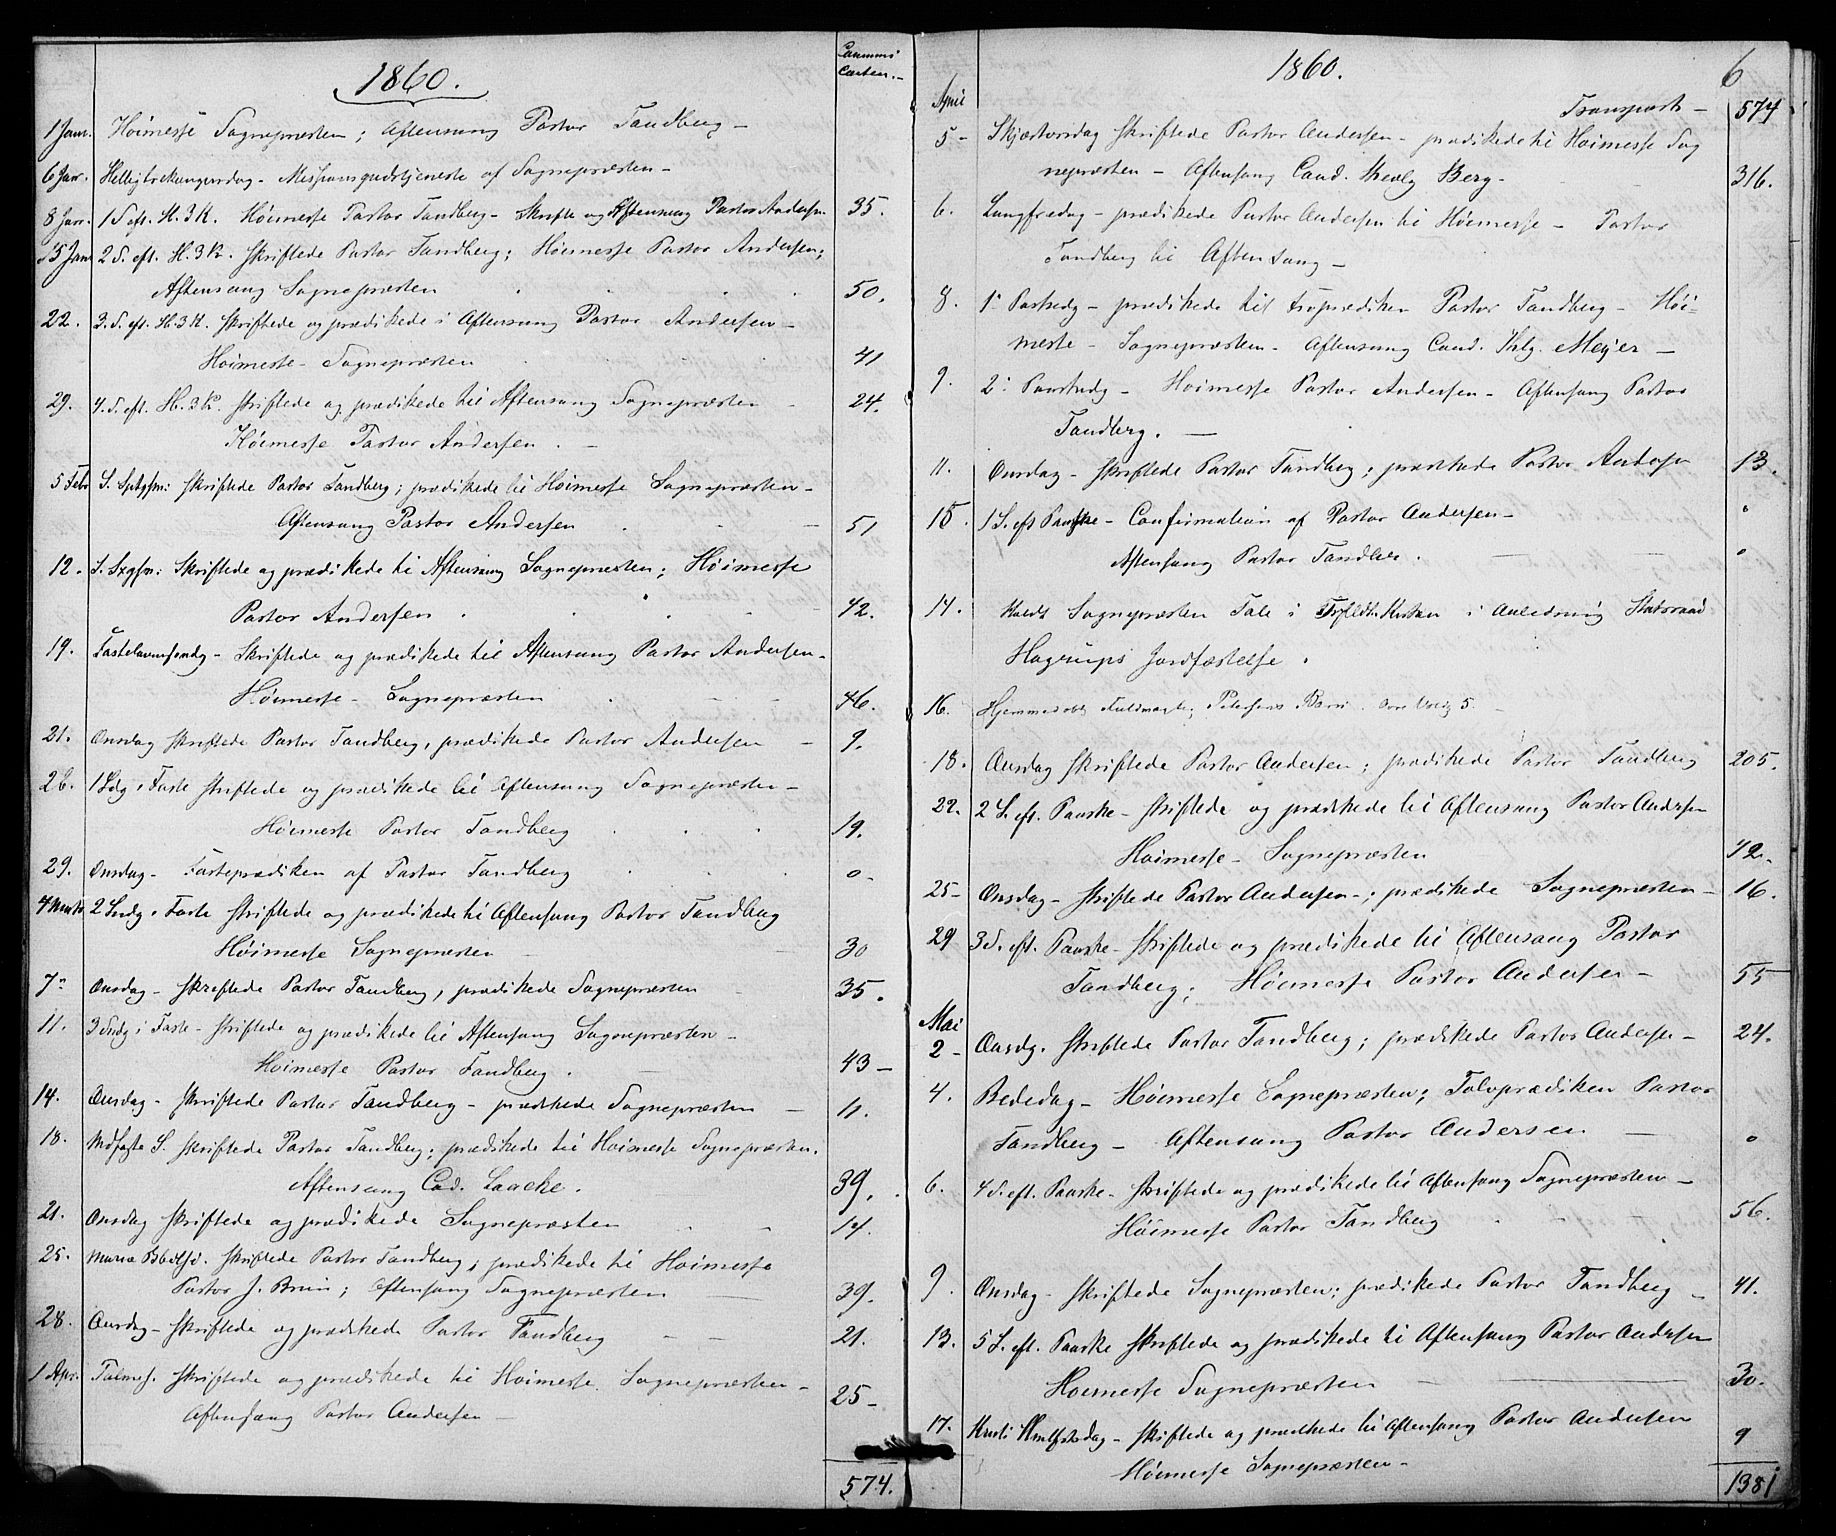 1860.
Communi
canter.
1 Janr. Høimesse Sognepræsten; Aftensang Pastor Tandberg –
6 Janr. Helligtrekongersdag – Missionsgudstjeneste af Sognepræsten –
8 Janr. 1 S. eft. H. 3 K. Høimesse Pastor Tandberg – Skrifte og Aftensang Pastor Andersen 35.
15 Janr 2 S. eft. H. 3 K. skriftede Pastor Tandberg; Høimesse Pastor Andersen;
Aftensang Sognepræsten 50.
22. 3. S. eft. H. 3 K. skriftede og prædikede i Aftensang Pastor Andersen –
Høimesse – Sognepræsten 41
29. 4. S. eft. H. 3 K. skriftede og prædikede til Aftensang Sognepræsten – 24.
Høimesse Pastor Andersen. –
5 Febr S. Sptgsm: skriftede Pastor Tandberg; prædikede til Høimesse Sognepræsten –
Aftensang Pastor Andersen 51
12. S. Sxgsm: Skriftede og prædikede ti Aftensang Sognepræsten; Høimesse
Pastor Andersen. 42.
19. Fastelavnssondg – Skriftede og prædikede til Aftensang Pastor Andersen –
Høimesse – Sognepræsten 46.
21. Onsdag skriftede Pastor Tandberg, prædikede Pastor Andersen – 9.
26. 1 Sdg i Faste skriftede og prædikede til Aftensang Sognepræsten –
Høimesse Pastor Tandberg 19.
29. Onsdag – Fasteprædiken af Pastor Tandberg 0 –
4 Marts 2 Sndg i Faste skriftede og prædikede til Aftensang Pastor Tandberg
Høimesse Sognepræsten – 30
7 – Onsdag – Skriftede Pastor Tandberg, prædikede Sognepræsten – 35.
11. 3 Sndg i Faste – skriftede og prædikede til Aftensang Sognepræsten –
Høimesse Pastor Tandberg. – 43 –
14. Onsdag – skriftede Pastor Tandberg – prædikede Sognepræsten – 11.
18. Midfaste S. skriftede Pastor Tandberg; prædikede til Høimesse Sognepræsten.
Aftensang Cad. Laacke. 39.
21. Onsdag skriftede og prædikede Sognepræsten 14.
25. Mariæ skriftede Pastor Tandberg; prædikede til Høimesse
Pastor J. Bruun; Aftensang Sognepræsten 39.
28. Onsdag – skriftede og prædikede Pastor Tandberg – – 21.
1 Apr. Palmes. skriftede og prædikede til Høimesse Sognepræsten –
Aftensang Pastor Andersen – 25 –
574.
1860. 6
April Transport – 574
5 – Skjærtorsdag skriftede Pastor Andersen – prædikede til Høimesse Sog
nepræsten – Aftensang Cand. theolg Berg – 316.
6. Langfredag – prædikede Pastor Andersen til Høimesse – Pastor
Tandberg til Aftensang –
8. 1: Paaskedg – prædikede til Froprædiken Pastor Tandberg – Høi-
messe – Sognepræsten – Aftensang Cand. thlg. Meyer –
9. 2: Paaskedg – Høimesse Pastor Andersen – Aftensang Pastor
Tandberg. –
11. Onsdag – skriftede Pastor Tandberg; prædikede Pastor Andersen 13.
15. 1 S. eft Paaske – Confirmation af Pastor Andersen – 0
Aftensang Pastor Tandberg. – – 0
14. Holdt Sognepræsten Tale i Trefoldh. Kirken i Anledning Statsraad
Hagerups Jordfæstelse.
16. Hjemmedøbt Petersens Barn 5. –
18. Onsdag skriftede Pastor Andersen; prædikede Pastor Tandberg 205.
22. 2 S. eft. Paaske – skriftede og prædikede til Aftensang Pastor Andersen
Høimesse – Sognepræsten 42.
25 – Onsdag – skriftede Pastor Andersen –; prædikede Sognepræsten – 16.
29 3 S. eft. Paaske – skriftede og prædikede til Aftensang Pastor
Tandberg; Høimesse Pastor Andersen – 55
Mai
2 – Onsdg. skriftede Pastor Tandberg; prædikede Pastor Andersen – 24.
4. Bededag – Høimesse Sognepræsten; Tolvprædiken Pastor
Tandberg – Aftensang Pastor Andersen – 0
6. 4 S. eft. Paaske – skriftede og prædikede til Aftensang Sognepræsten –
Høimesse Pastor Tandberg 56.
9. Onsdag – skriftede Sognepræsten; prædikede Pastor Tandberg – 41.
13. 5 S. eft. Paaske skriftede og prædikede til Aftensang Pastor Andersen
Høimesse Sognepræsten – 30.
17. Kristi Himlfrtsdag – skriftede og prædikede til Aftensang Pastor Andersen 9
Høimesse Sognepræsten –
1381